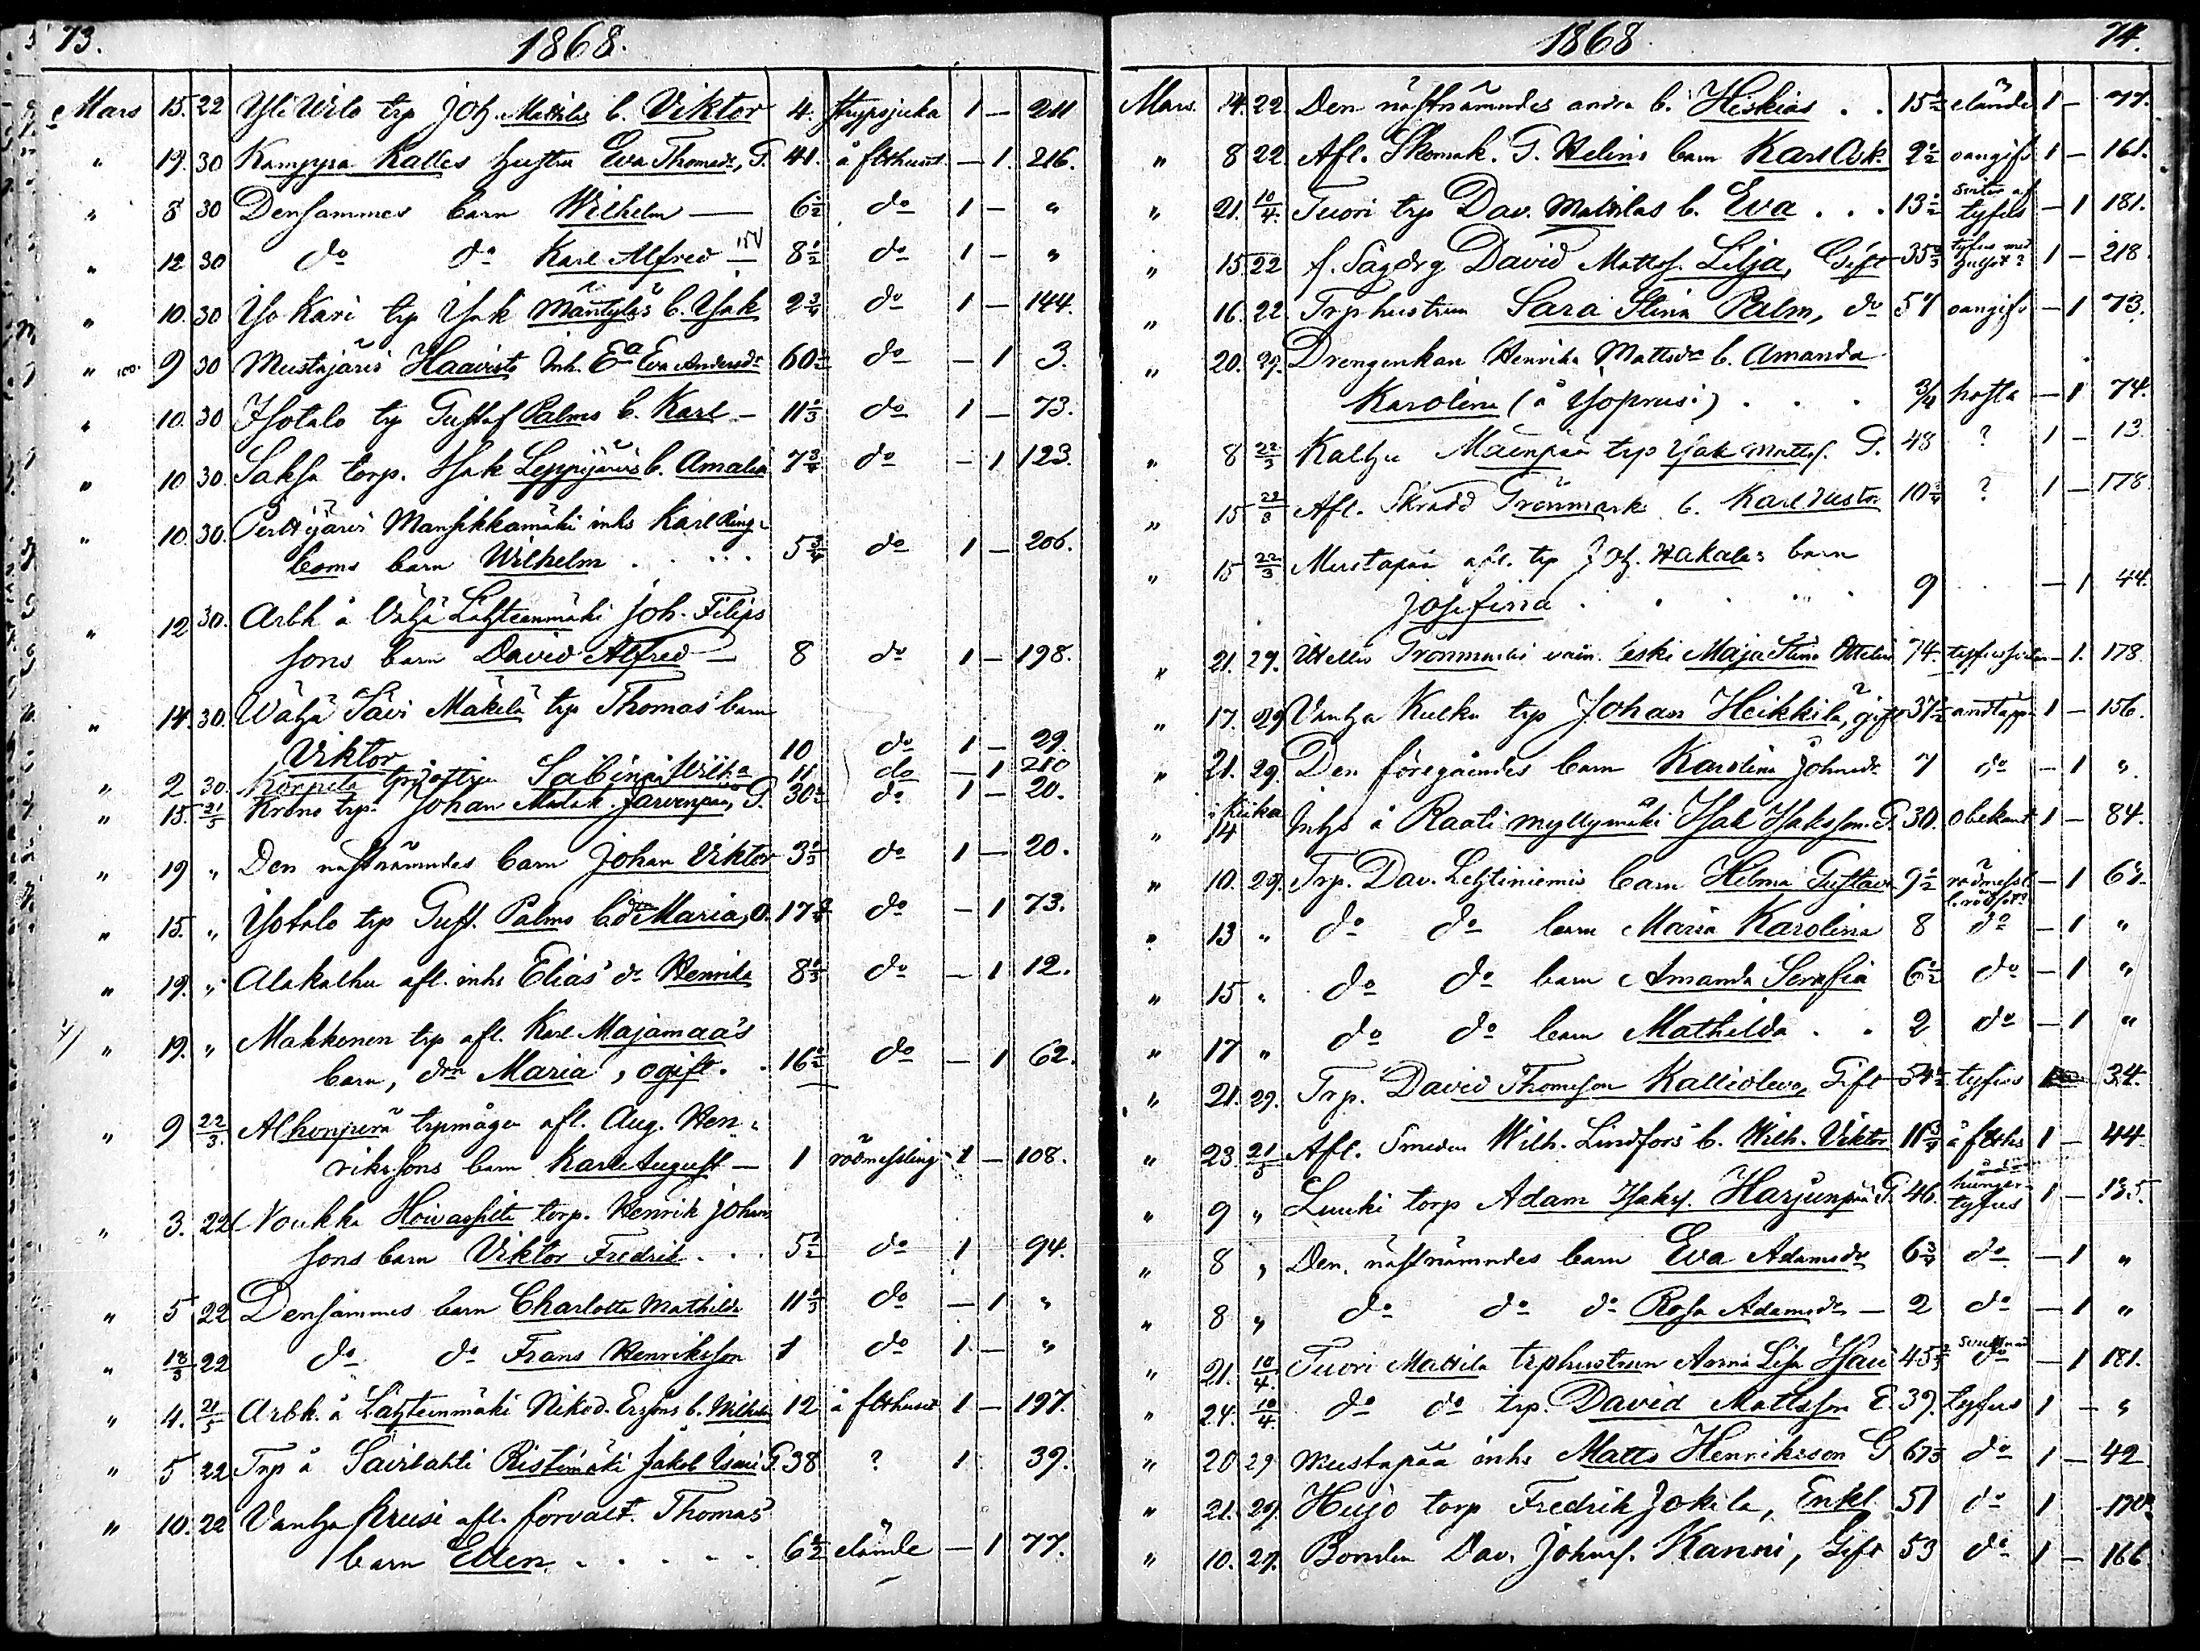 73. 1868.
Mars 15. 22 Yli Wilo trp Joh. Mattilas b. Viktor 4. strypsjuka 1 — 211
" 19. 30 Kamppra Kalles hustru Eva Thomasdr, G. 41. å ftthuset — 1. 216.
" 8 30 Densammes barn Wilhelm — 6½ do 1 — "
" 12 30 do do Karl Alfred — 8½ do 1 — "
" 10. 30 Iso Kari trp Isak Mäntyläs b. Isak 2¾ do 1 — 144.
" 9 30 Mustajärvi Haavisto inh. Ea Eva Andersdr 60½ do — 1 3.
" 10. 30 Isotalo trp Gustaf Palms b. Karl — 11⅓ do 1 — 73.
" 10 30. Saksa torp. Isak Leppijärvis b. Amalia 7¾ do — 1 123.
" 10. 30. Perttijärvi Mansikkamäki inhs Karl Ring-
boms barn Wilhelm . . . . 5¾ do 1 — 206.
" 12 30. Arbk å Vähä Lähteenmäki Joh. Filips
sons barn David Alfred — 8 do 1 — 198.
" 14. 30. Wähä Sävi Mäkelä trp Thomas barn
Viktor 10 do 1 — 29.
" 2 30. Korpela Sabina 11 do — 1 210
" 15. 21/5 Krono trp. Johan Järvenpää, G. 30½ do 1 — 20.
" 19 " Den nästnämndes barn Johan Viktor 3⅓ do 1 — 20.
" 15. " Isotalo trp Gust. Palms b. Maria, O. 17¾ do — 1 73.
" 19. " Alakalhu afl. inhs Elias dr Henrika 8⅓ do — 1 12.
" 19. " Makkonen trp afl. Karl Majamaa's
barn, Maria, ogift. . 16½ do — 1 62.
" 9 22/3. Alhonperä trpmågen afl. Aug. Hen-
rikssons barn Karl August — 1 rödmessling 1 — 108.
" 3. 22 Noukka torp. Henrik Johans
sons barn Viktor Fredrik . . . 5½ do 1 94.
" 5 22 Densammes barn Charlotta Mathilda 11⅓ do — 1 "
" 13/3 22 do do Frans Henriksson 1 do 1 — "
" 4. 21/5 Arbk. å Lähteenmäki Nikod. b. Wilhelm 12 å ftthuset 1 — 197.
" 5 22 Trp å Sairilahti Ristimäki Jakob G. 38 ? 1 39.
" 10. 22 Vanha Krusi afl. förvalt. Thomas
barn Eden . . . . . 6½ elände — 1 77.
1868 74.
Mars. 14. 22. Den nästnämndes andra b. Heskias . . 15½ elände 1 — 77.
" 8 22 Afl. Skomak. G. Helins barn Karl Osk. 2½ oangifv 1 — 161.
" 21. 10/4. Tuori trp Dav. Mattilas b. Eva . . . 13½ tyfus — 1 181.
" 15. 22 f. Sagbrg David Mattss. Lilja, Gift 35⅔ tyfus med 1 — 218.
" 16. 22 Trphustrun Sara Stina Palm, do 57 oangifv — 1 73.
" 20. 29. Drengenkan Henrika Mattsdr b. Amanda
Karolina (å Isoprusi) . . . ¾ hosta — 1 74.
" 8 22/3 Kalhu Mäenpää trp Isak Mattss. G. 48 ? 1 — 13.
" 15 22/3 Afl. Skrädd Grönmark b. Karl Gustav 10¾ ? 1 — 178
" 15 22/3 Mustapää afl. trp Joh. Hakalas barn
Josefina . . . . . 9 . — 1 44.
" 21. 29. Grönmarks Maja Stina 74. — 1. 178
" 17. 29 Vanha Kulku trp Johan Heikkilä, gift 37½ andtäppa 1 — 156.
" 21. 29. Den föregåendes barn Karolina Johnsdr 7 do — 1 "
" 14 Inhs å Raati Myllymäki Isak Isaksson. G. 30. Obekant 1 — 84.
" 10. 29. Trp. Dav. Lehtiniemis barn Helma Gustava 9½ rödmessl. — 1 67.
" 13 " do do barn Maria Karolina 8 do — 1 "
" 15 " do do barn Amanda Serafia 6½ do — 1 "
" 17 " do do barn Mathilda . . 2 do — 1 "
" 21. 29. Trp. David Thomsson Kallioleva, Gift 54½ tyfus 1 34.
" 23. 21/5 Afl. Smeden Wilh. Lindfors b. Wilh. Viktor 11¾ å ftths 1 — 44.
" 9 " Luuki torp Adam Isakss. Harjunpää G. 46. hunger-tyfus 1 — 135.
" 8 " Den nästnämndes barn Eva Adamsdr 6¾ do — 1 "
" 8 " do do do Rosa Adamsdr — 2 do — 1 "
" 21. 10/4. Tuori Mattila trphustrun Anna Lisa 45⅔ do — 1 181.
" 24. 10/4. do do trp. David Mattsson E. 39. tyfus 1 — "
" 20 29 Mustapää inhs Matts Henriksson G 67⅓ do 1 — 42
" 21. 29. Hujo torp Fredrik Jokila, Enkl. 51 do 1
" 10. 29. Bonden Dav. Johnss. Hanni, Gift 53 do 1 — 166